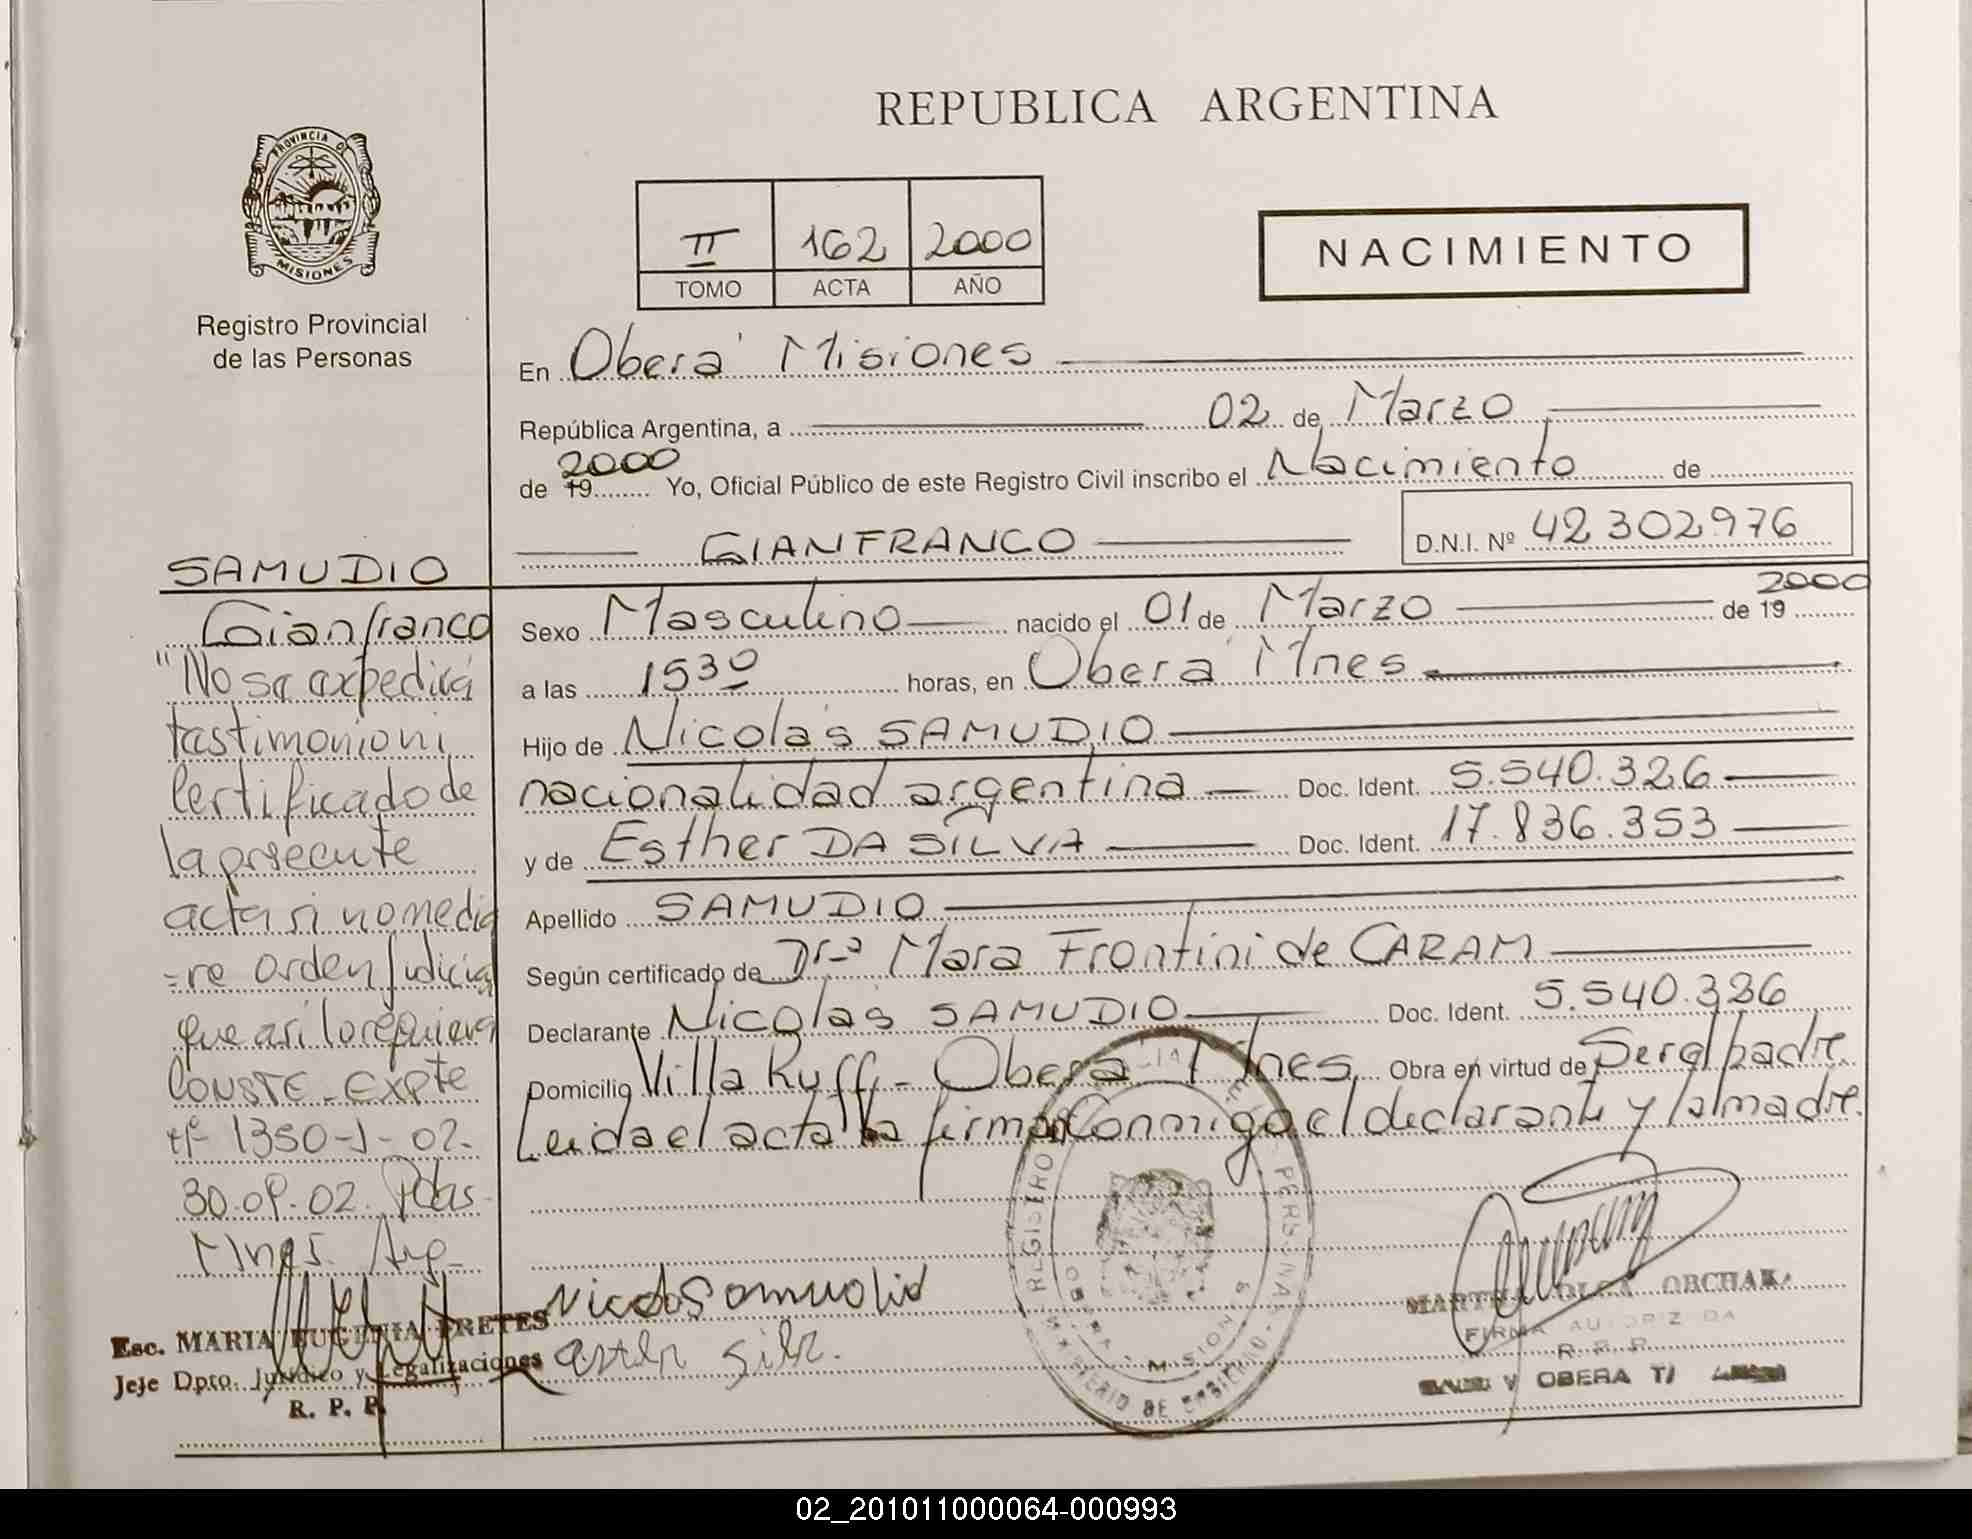 REPUBLICA ARGENTINA
PROVINCIA DE
MISIONES
Registro Provincial
de las Personas
II 162 2000
TOMO ACTA AÑO
NACIMIENTO
En Oberá Misiones
República Argentina, a 02 de Marzo
de 19 2000 Yo, Oficial Público de este Registro Civil inscribo el Nacimiento de
GIANFRANCO
D.N.I. Nº 42302976
Sexo Masculino nacido el 01 de Marzo de 19 2000
a las 1530 horas, en Oberá Mnes
Hijo de Nicolás SAMUDIO
nacionalidad argentina Doc. Ident. 5.540.326
y de Esther DA SILVA Doc. Ident. 17.836.353
Apellido SAMUDIO
Según certificado de Drª Mara Frontini de CARAM
Declarante Nicolás SAMUDIO Doc. Ident. 5.540.326
Domicilio Villa Ruff - Oberá Mnes Obra en virtud de Ser el padre
Leida el acta la firman conmigo el declarante y la madre.
SAMUDIO
Gianfranco
"No se expedirá
testimonio ni
Certificado de
la presente
acta si no media
=re orden Judicial
que asi lo requiera
CONSTE - EXPTE
Nº 1350-J-02.
30.09.02. Pdas
Mnes. Arg.
Esc. MARIA EUGENIA FRETES
Jeje Dpto. Jurídico y Legalizaciones
R. P. P.
Nicolas Samudio
MARTHA OLGA ORCHAK
FIRMA AUTORIZADA
R. P. P.
OBERA
REGISTRO
OBERA - MISIONES
MINISTERIO DE GOBIERNO
02_201011000064-000993